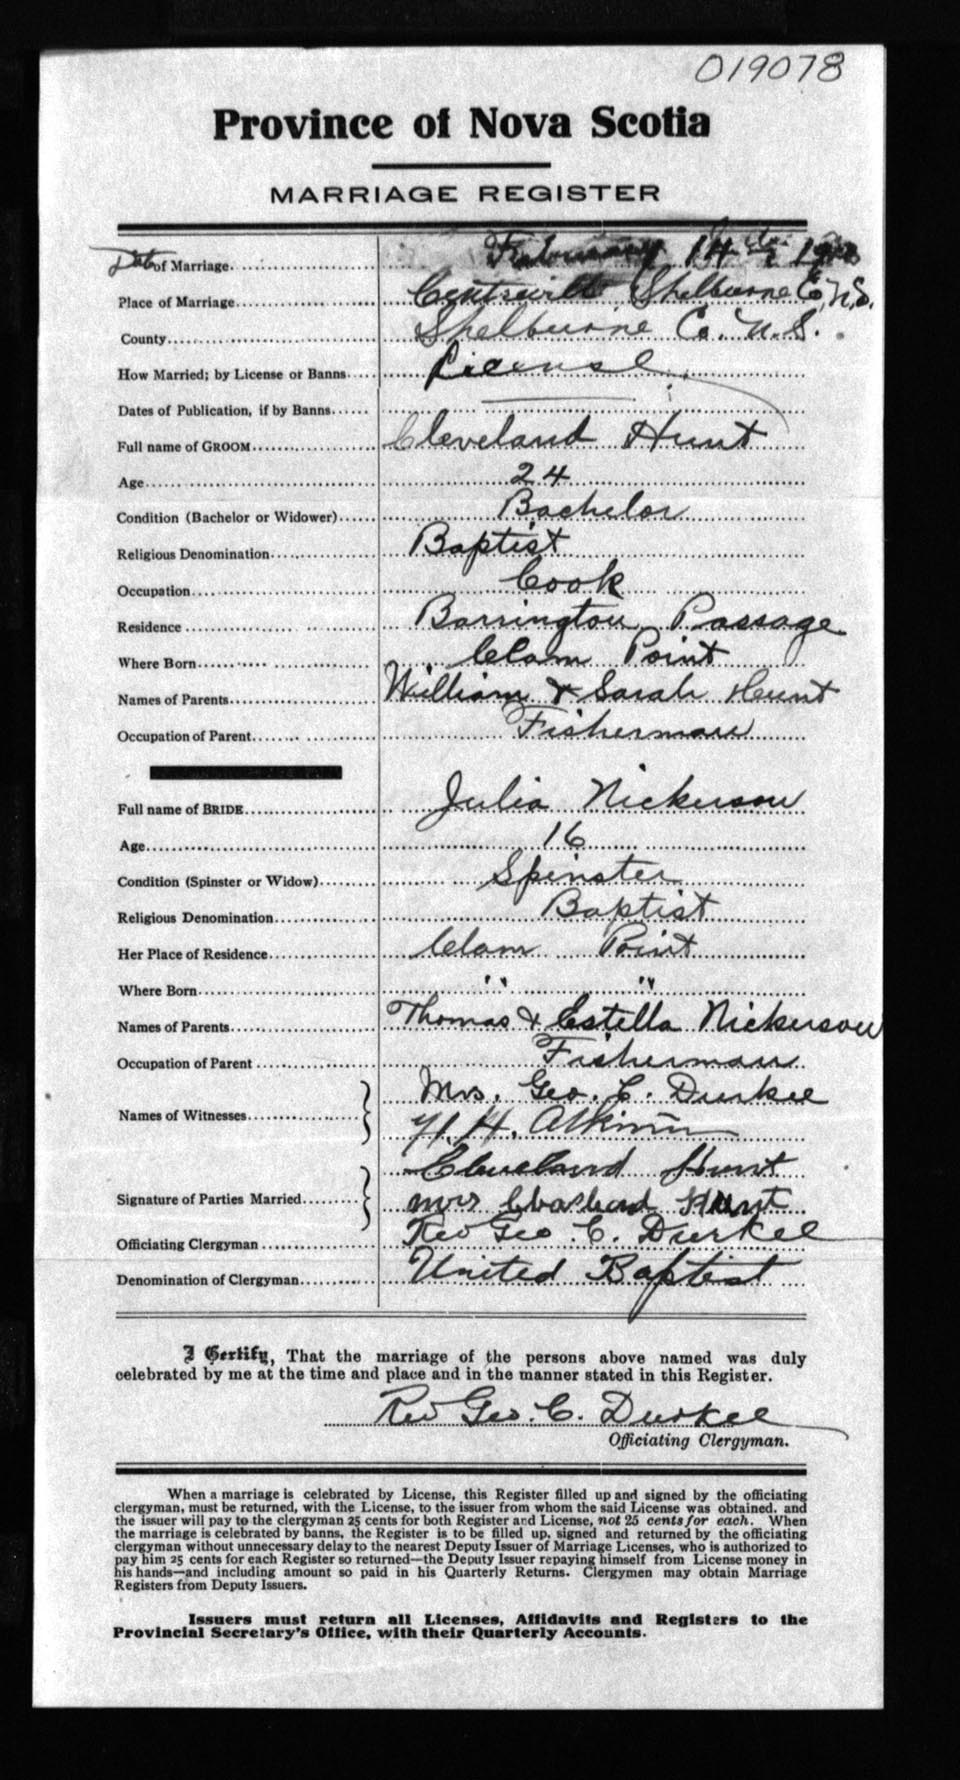 019078
Province of Nova Scotia
MARRIAGE REGISTER
Date of Marriage February 14th
Place of Marriage Centreville Shelburne Co, N.S.
County Shelburne Co. N.S.
How Married; by License or Banns License
Dates of Publication, if by Banns
Full name of GROOM Cleveland Hunt
Age 24
Condition (Bachelor or Widower) Bachelor
Religious Denomination Baptist
Occupation Cook
Residence Barrington Passage
Where Born Clam Point
Names of Parents William & Sarah Hunt
Occupation of Parent Fisherman
Full name of BRIDE Julia Nickerson
Age 16
Condition (Spinster or Widow) Spinster
Religious Denomination Baptist
Her Place of Residence Clam Point
Where Born " "
Names of Parents Thomas & Estella Nickerson
Occupation of Parent Fisherman
Names of Witnesses Mrs. Geo. C. Durkee
H. Atkinson
Signature of Parties Married Cleveland Hunt
Mrs Hunt
Officiating Clergyman Rev Geo. C. Durkee
Denomination of Clergyman United Baptist
I Certify, That the marriage of the persons above named was duly
celebrated by me at the time and place and in the manner stated in this Register.
Rev Geo. C. Durkee
Officiating Clergyman.
When a marriage is celebrated by License, this Register filled up and signed by the officiating
clergyman, must be returned, with the License, to the issuer from whom the said License was obtained, and
the issuer will pay to the clergyman 25 cents for both Register and License, not 25 cents for each. When
the marriage is celebrated by banns, the Register is to be filled up, signed and returned by the officiating
clergyman without unnecessary delay to the nearest Deputy Issuer of Marriage Licenses, who is authorized to
pay him 25 cents for each Register so returned—the Deputy Issuer repaying himself from License money in
his hands—and including amount so paid in his Quarterly Returns. Clergymen may obtain Marriage
Registers from Deputy Issuers.
Issuers must return all Licenses, Affidavits and Registers to the
Provincial Secretary's Office, with their Quarterly Accounts.